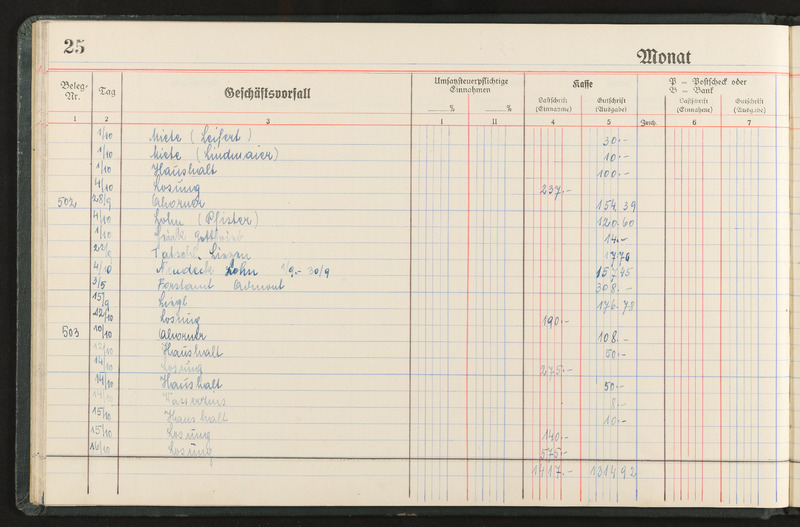 25
Monat
Beleg-Nr. Tag Geschäftsvorfall Umsatzsteuerpflichtige Einnahmen Kasse P = Postscheck oder B = Bank
% % Lastschrift (Einnahme) Gutschrift (Ausgabe) Zeich. Lastschrift (Einnahme) Gutschrift (Ausgabe)
1 2 3 I II 4 5 6 7
1/10 Miete (Leifert) 30.-
1/10 Miete (Lindmaier) 10.-
1/10 Haushalt 100.-
4/10 Losung 237.-
502 28/9 Ahorner 154 39
4/10 Lohn (Pfister) 120.60
1/10 14.-
Liezen 17 76
4/10 Neudeck Lohn 1/9.- 30/9 157 45
3/5 Forstamt Admont 308.-
15/9 Liegl 176.78
12/10 Losung 190.-
503 10/10 Ahorner 108.-
12/10 Haushalt 50.-
14/10 Losung 275.-
14/10 Haushalt 50.-
14/10 8.-
15/10 Haushalt 10.-
15/10 Losung 140.-
16/10 Losung 575.-
1417.- 1314 92